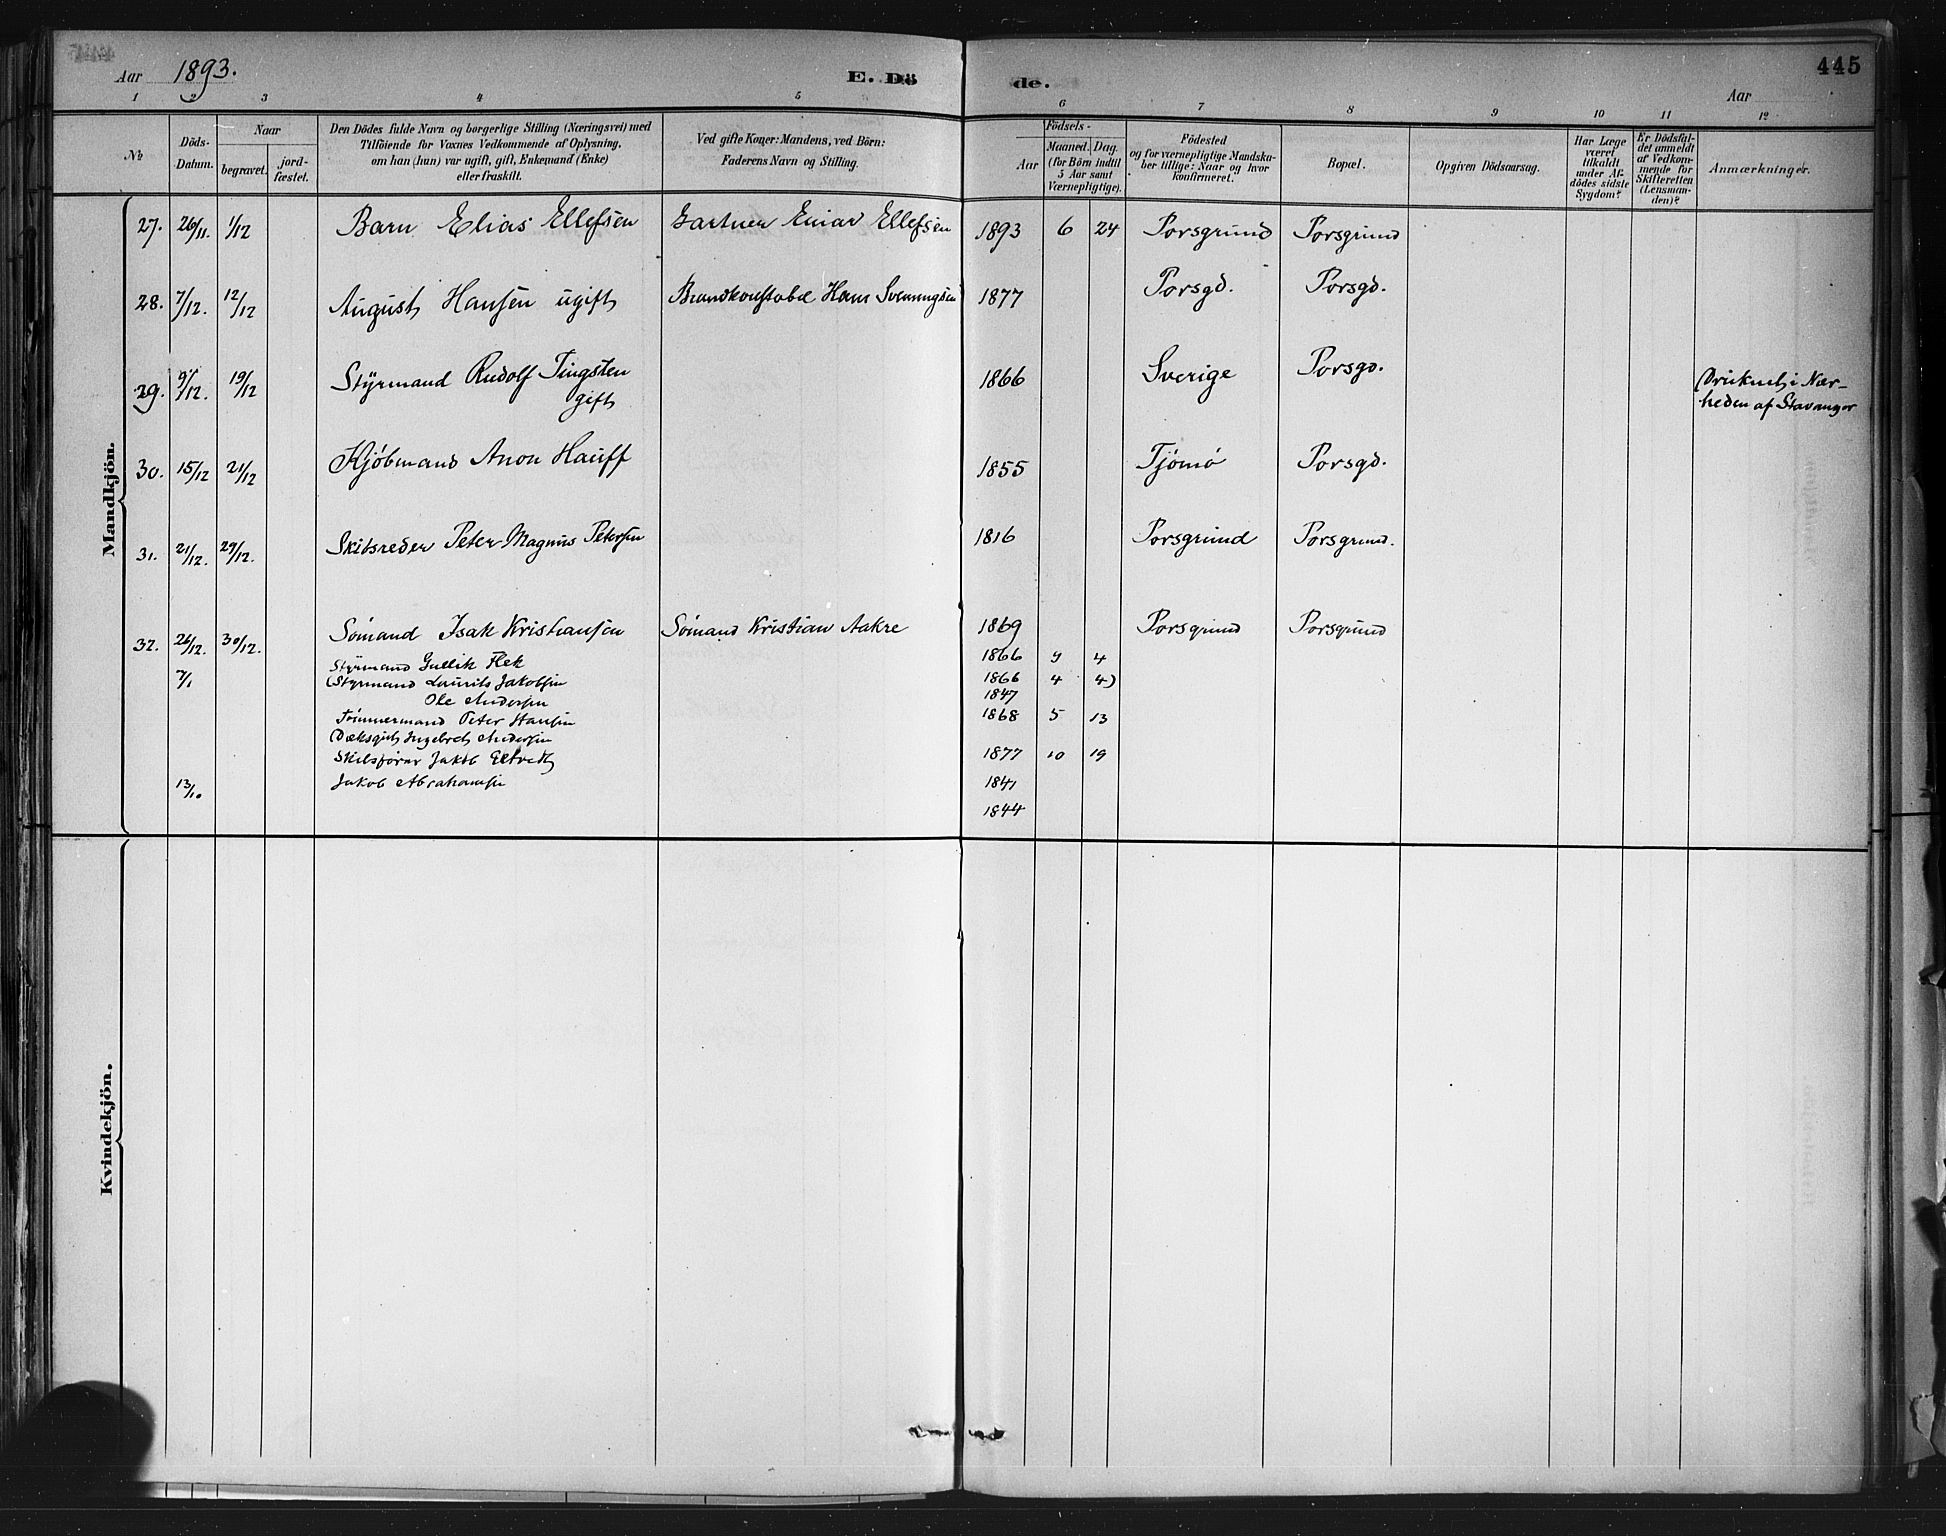 Aar 1893.
E. Dö
de.
Aar
445
1 2 3 4 5 6 7 8 9 10 11 12
No
Döds-Datum.
Naar
begravet.
jord-fæstet.
Den Dödes fulde Navn og borgerlige Stilling (Næringsvei) med
Tilföiende for Voxnes Vedkommende af Oplysning,
om han (hun) var ugift, gift, Enkemand (Enke)
eller fraskilt.
Ved gifte Koner: Mandens, ved Börn:
Faderens Navn og Stilling.
Födsels-
Aar
Maaned. Dag.
(for Börn indtil
5 Aar samt
Værnepligtige).
Födested
og for værnepligtige Mandska-
ber tillige: Naar og hvor
konfirmeret.
Bopæl.
Opgiven Dödsaarsag.
Har Læge
været
tilkaldt
under Af-
dödes sidste
Sygdom?
Er Dödsfal-
det anmeldt
af Vedkom-
mende for
Skifteretten
(Lensman-
den)?
Anmærkninger.
Mandkjön.
27. 26/11. 1/12 Barn Elias Ellefsen Gartner Einar Ellefsen 1893 6 24 Porsgrund Porsgrund
28. 7/12. 12/12 August Hansen ugift Brandkonstabel Hans Svenningsen 1877 Porsgd. Porsgd.
29. 9/12. 19/12 Styrmand Rudolf Tingsten 1866 Sverige Porsgd. Druknet i Nær-
gift heden af Stavanger
30. 15/12 21/12 Kjöbmand Anon Hauff 1855 Tjömö Porsgd.
31. 21/12. 29/12. Skibsreder Peter Magnus Petersen 1816 Porsgrund Porsgrund.
32. 26/12. 30/12. Sömand Isak Kristiansen Sömand Kristian Aakre 1869 Porsgrund Porsgrund
Styrmand Gullik Flek 1866 9 4
7/1 (Styrmand Laurits Jakobsen 1866 4 4)
Ole Andersen 1847
Tömmermand Peter Hansen 1868 5 13
Dæksgut Ingebret Andersen
Skibsförer Jakob 1877 10 19
13/10 Jakob Abrahamsen 1841
1844
Kvindekjön.